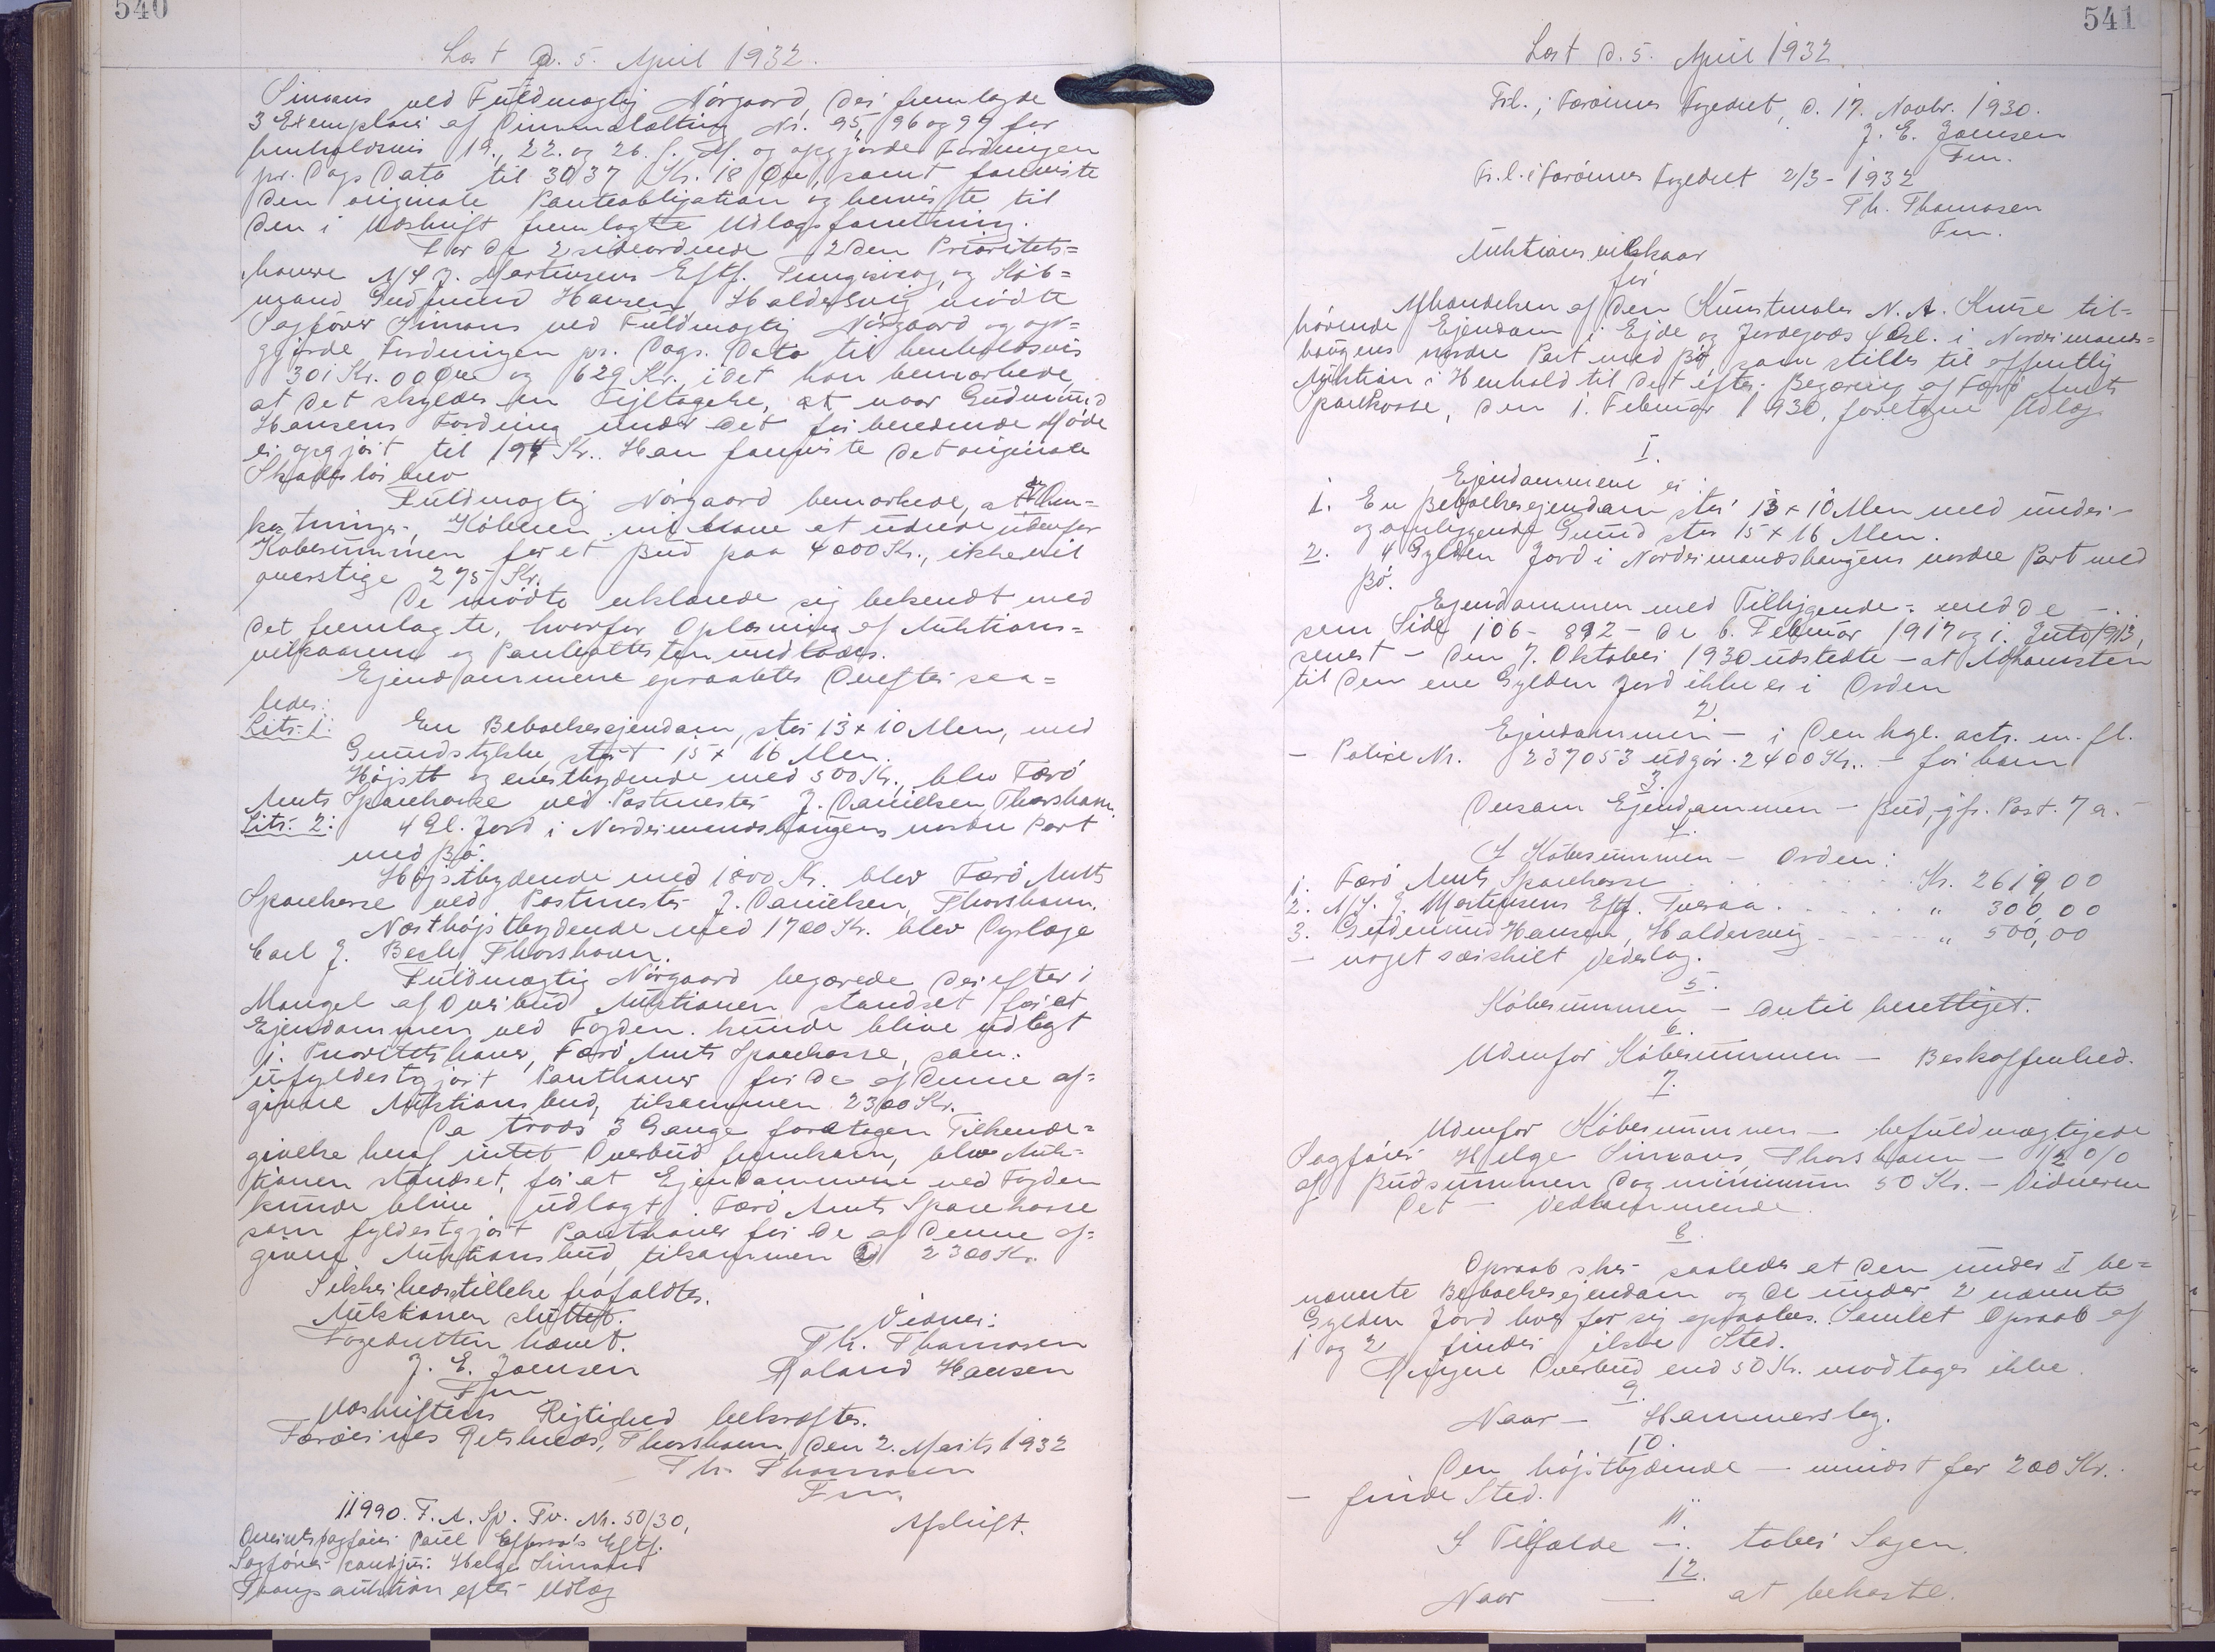 540
Læst d. 5. April 1932.
Simans ved Fuldmægtig Nórgaard, der fremlagde
3 Exemplarer af Dimmalætting Nr. 95, 96 og 97 for
henholdsvis 19., 22. og 26. f. M. og opgjorde Fordringen
pr. Dags Dato til 3037 Kr. 18 Øre, samt foreviste
den originale Panteobligation og henviste til
den i Udskrift fremlagte Udlægsforretning.
For de 2 sideordnede 2den Prioritets=
havere A/S J. Mortensens Eftf. Trungisvaag, og Køb=
mand Gudmund Hansen, Haldersvig mødte
Sagfører Simans ved Fuldmægtig Nórgaard og op=
gjorde Fordringen pr. Dags. Dato til henholdsvis
301 Kr. 00 Øre og 629 Kr., idet han bemærkede,
at det skyldes en Fejltagelse, at naar Gudmund
Hansens Fordring under det forberedende Møde
er opgjort til 194 Kr.. Han foreviste det originale
Skadesløsbrev
Fuldmægtig Nórgaard bemærkede, at de Om=
kostninger, Køberen vil have at udrede udenfor
Købesummen for et Bud paa 4000 Kr., ikke vil
overstige 275 Kr.
De mødte erklærede sig bekendt med
det fremlagte, hvorfor Oplæsning af Auktions=
vilkaarene og Panteattesten undlodes.
Ejendommene opraabtes derefter saa=
ledes:
Litr. 1: En Beboelsesejendom, stor 13 x 10 Alen, med
Grundstykke stort 15 x 16 Alen.
Højstb og enestbydende med 500 Kr., blev Færø
Amts Sparekasse ved Postmester J. Danielsen, Thorshavn.
Litr. 2: 4 Gl. Jord i Nordrimandshougens nordre Part
med Bø.
Højstbydende med 1800 Kr. blev Færø Amts
Sparekasse ved Postmester J. Danielsen, Thorshavn.
Næsthøjstbydende med 1700 Kr. blev Dyrlæge
Carl J. Bech, Thorshavn.
Fuldmægtig Nórgaard begærede derefter i
Mangel af Overbud Auktionen standset for at
Ejendommen ved Fogden kunde blive udlagt
1. Prioritetshaver, Færø Amts Sparekasse, som
ufyldestgjort Panthaver for de af denne af=
givne Auktionsbud, tilsammen 2300 Kr.
Da trods 3 Gange foretagen Tilkende=
givelse heraf intet Overbud fremkom, blev Auk=
tionen standset, for at Ejendommene ved Fogden
kunde blive udlagt Færø Amts Sparekasse
som fyldestgjort Panthaver for de af denne af=
givne Auktionsbud tilsammen 2300 Kr.
Sikkerhedsstillelse frafaldtes.
Auktionen sluttet.
Fogedretten hævet.
J. E. Joensen
Fm
Vidner:
Th. Thomasen
Roland Hansen
Udskriftens Rigtighed bekræftes.
Færøernes Retskreds, Thorshavn, den 2. Marts 1932
Th. Thomasen
Fm.
11990. F. A. Sp. Tv. Nr. 50/30,
Overretssagfører Paul Effersøe's Eftf.
Sagfører cand jur: Helge Simans
Tvangsauktion efter Udlæg
Afskrift.
541
Læst d. 5. April 1932
Frl. i Færøernes Fogedret, d. 17. Novbr. 1930.
J. E. Joensen
Fm.
Fr. l. i Færøernes Fogedret 2/3 - 1932
Th. Thomasen
Fm.
Auktionsvilkaar
for
Afhændelsen af den Kunstmaler N. A. Kruse til=
hørende Ejendom i Ejde og Jordegods 4 Gl. i Nordrimands=
hougens nordre Part med Bø som stilles til offentlig
Auktion i Henhold til det efter Begæring af Færø Amts
Sparekasse, den 1. Februar 1930, foretagne Udlæg
I.
Ejendommene er:
1. En Beboelsesejendom stor 13 x 10 Alen med under-
og omliggende Grund stor 15 x 16 Alen.
2. 4 Gylden Jord i Nordrimandshougens nordre Part med
Bø.
Ejendommen med Tilliggende - med de -
som Side 106 - 892 - de 6. Februar 1917 og 1. Juto 1913,
senest - den 7. Oktober 1930 udstedte - at Adkomsten
til den ene Gylden Jord ikke er i Orden
2.
Ejendommen - i den hgl. acts. m. fl.
- Police Nr. 237053 udgør 2400 Kr.. - for ham
3.
Dersom Ejendommen - Bud, jfr. Post. 7 a. -
4.
I Købesummen - Orden:
1. Færø Amts Sparekasse . . . . . Kr. 2619,00
2. A/S. J. Mortensens Eftf. Tveraa . . . . . " 300,00
3. Gudmund Hansen, Haldersvig - - - - " 500,00
- noget særskilt Vederlag.
5.
Købesummen - dertil berettiget.
6.
Udenfor Købesummen - Beskaffenhed.
7.
Udenfor Købesummen - befuldmægtigede
Sagfører Helge Simans, Thorshavn - 1/2 0/0
af Budsummen dog minimum 50 Kr. - Vidnerne
Det - Vedkommende.
8.
Opraab sker saaledes at den under I be=
nævnte Beboelsesejendom og de under 2 nævnte
Gylden Jord hver for sig opraabes. Samlet Opraab af
1 og 2 finder ikke Sted.
Ringere Overbud end 50 Kr. modtages ikke.
9.
Naar - Hammerslag.
10.
Den højstbydende - mindst for 200 Kr.
- finde Sted.
11.
I Tilfælde - taber Sagen.
12.
Naar - at bekoste.